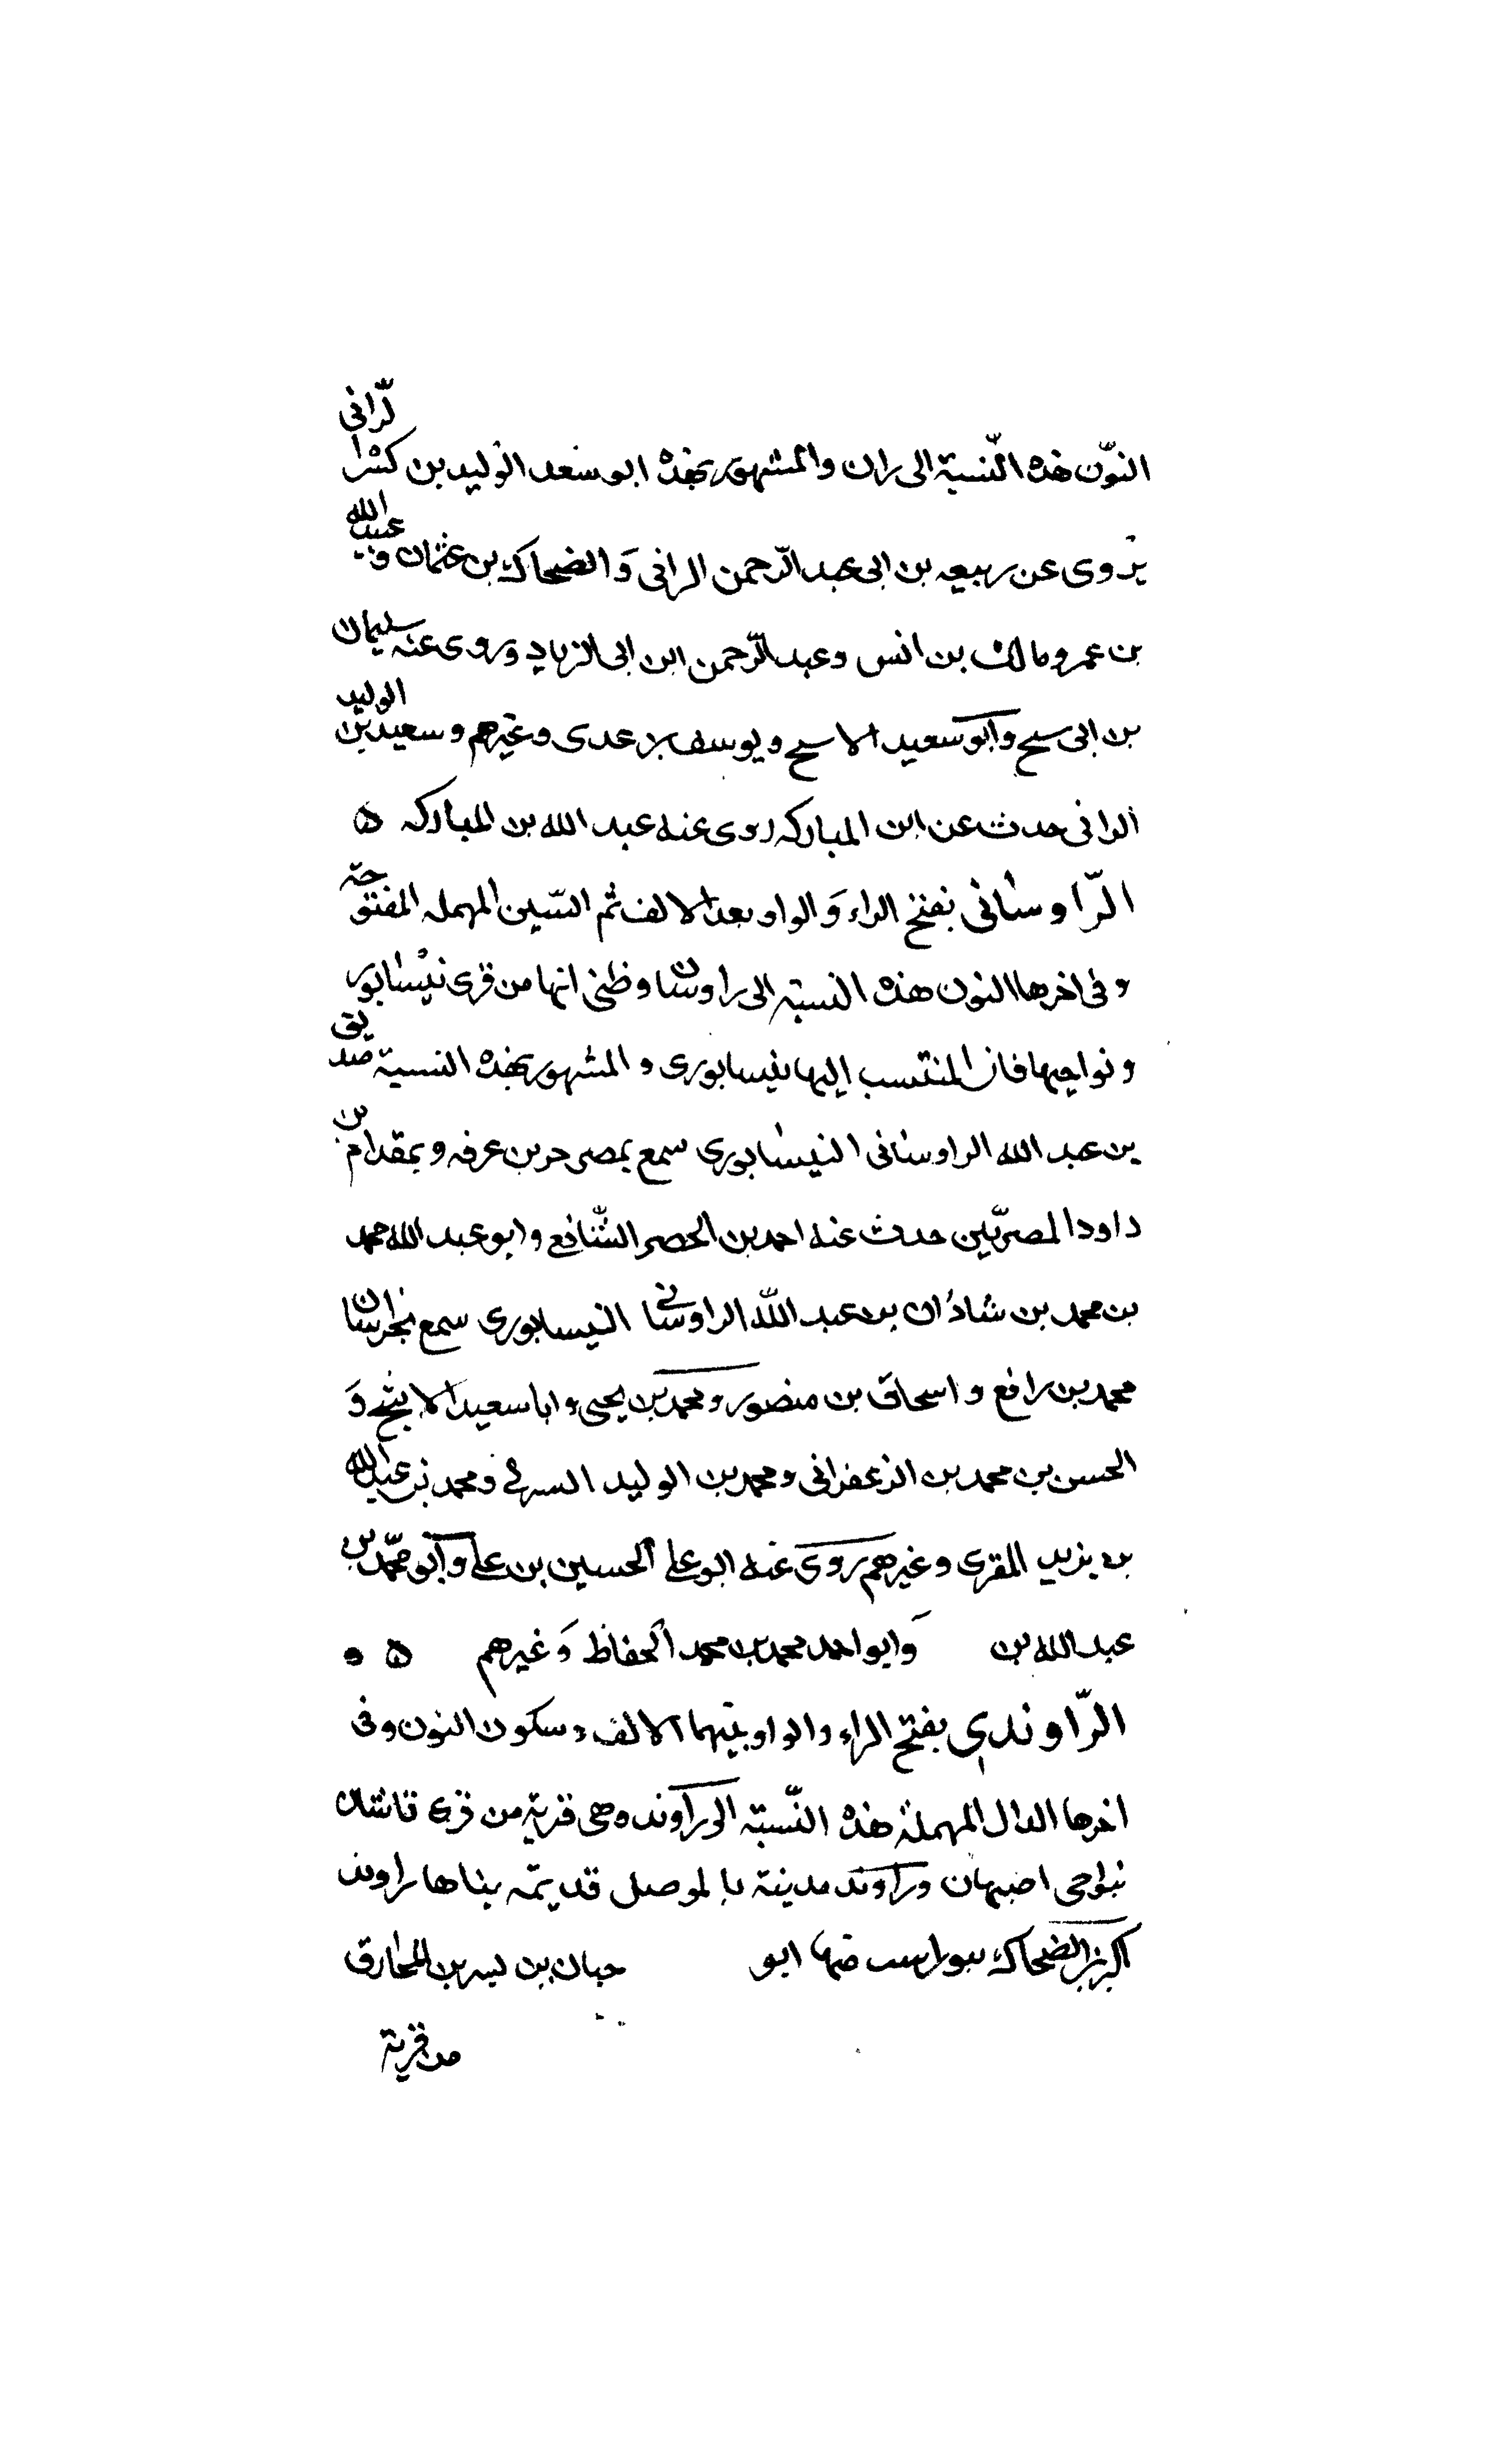 النوّن هذه النّسبة الى ران والمشهور بهذه ابو سعد الوليد بن كثير الرّانى
يروى عن ربيعه بن ابى عبد الرّحمن الرانى وَالضحاك بن عثمان وعبيد الله
بن عمر ومالك بن انس وعبد الرّحمن ابن ابى الزياد وروى عنه سليمان
بن ابى سيح وابو سعيد الاسح ويوسف بن عدى وغيرهم وسعيد بن الوليد
الرانى حدث عن ابن المباركه روى عنه عبد الله بن المباركه ه
الرّاوسانى بفتح الراء وَالواو بعد الالف ثم السّين المهمله المفتوحة
وفى اخرها النون هذه النسبة الى راوسان وظنى انها من قرى نيسابور
ونواحيها فان المنتسب اليها نيسابورى والمشهور بهذه النسبة صديق
بن عبد الله الراوسانى النيسابورى سمع بمصر حر بن عرفه وبمقدام بن
داود المصريّين حدث عنه احمد بن الحصر الشّافع وابو عبد الله محمد
بن محمد بن شاذان بن عبد اللّه الراوسانى النيسابورى سمع بخراسان
محمد بن رافع واسحاق بن منصور ومحمد بن يحيى وابا سعيد الاشج وَ
الحسن بن محمد بن الزعفرانى ومحمد بن الوليد السرى ومحمد بن عبد الله
بن يزيد المقرى وغيرهم روى عنه ابو على الحسين بن على وابو محمّد بن
عبد الله بن وَابو احمد محمد بن محمد الحفاظ وَغيرهم ه ه
الرّاوندى بفتح الراء والواو بينهما الالف وسكون النون وفى
اخرها الدال المهملة هذه النّسبة الى راوند وهى قرية من قرى قاشان
بنواحى اصبهان وراوند مدينة بالموصل قديمّه بناها راوند
الاكبر بن الضحاك بيوراسب منها ابو حبان بن بسر بن المخارق
من قرية